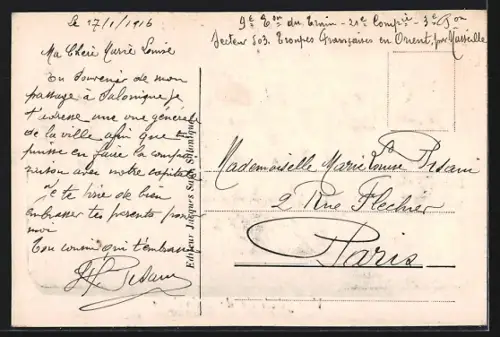 Le 17/1/1916
9è Eon du Train - 20è Compie - 3è
Secteur 503. Troupes Françaises en Orient, par Marseille
Ma Chère Marie Louise
En souvenir de mon
passage à Salonique je
t'adresse une vue générale
de la ville afin que tu
puisse en faire la compa
raison avec notre capitale
Je te prie de bien
embrasser tes parents pour
moi
Ton cousin qui t'embrasse
Pisani
Editeur Jacques Saul, Salonique
Mademoiselle Marie Louise Pisani
2 Rue Flechier
Paris